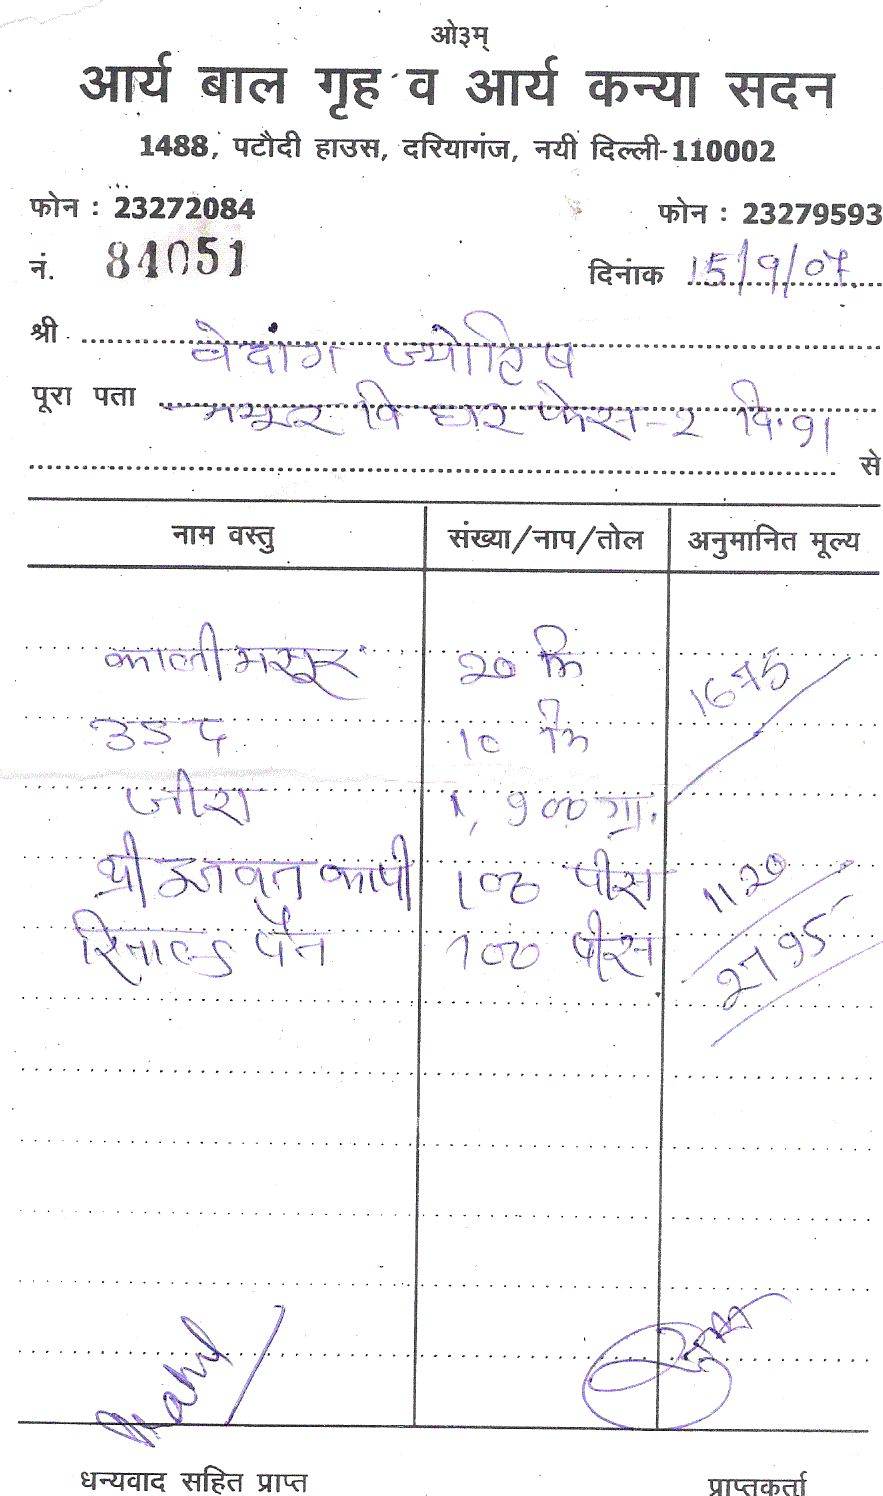 ओ३म्
आर्य बाल गृह व आर्य कन्या सदन
1488, पटौदी हाउस, दरियागंज, नयी दिल्ली-110002
फोन : 23272084 फोन : 23279593
नं. 84051 दिनांक 15/9/07
श्री वेदांग ज्योतिष
पूरा पता मयूर विहार फेस-२ दि.९१
से
नाम वस्तु संख्या/नाप/तोल अनुमानित मूल्य
काली मसूर २० कि
उडद 10 कि
जीरा 1, ९०० ग्रा.
पीस 1120
पैन १०० पीस 2795
धन्यवाद सहित प्राप्त प्राप्तकर्ता